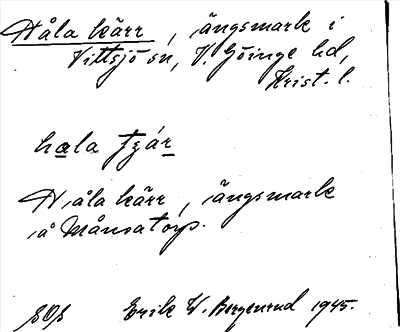 Håla kärr, ängsmark i
Vittsjö sn, V. Göinge hd,
Krist. l.
hala tʒár
Håla kärr, ängsmark
å Månsatorp.
Erik W. Bergenrud 1945.